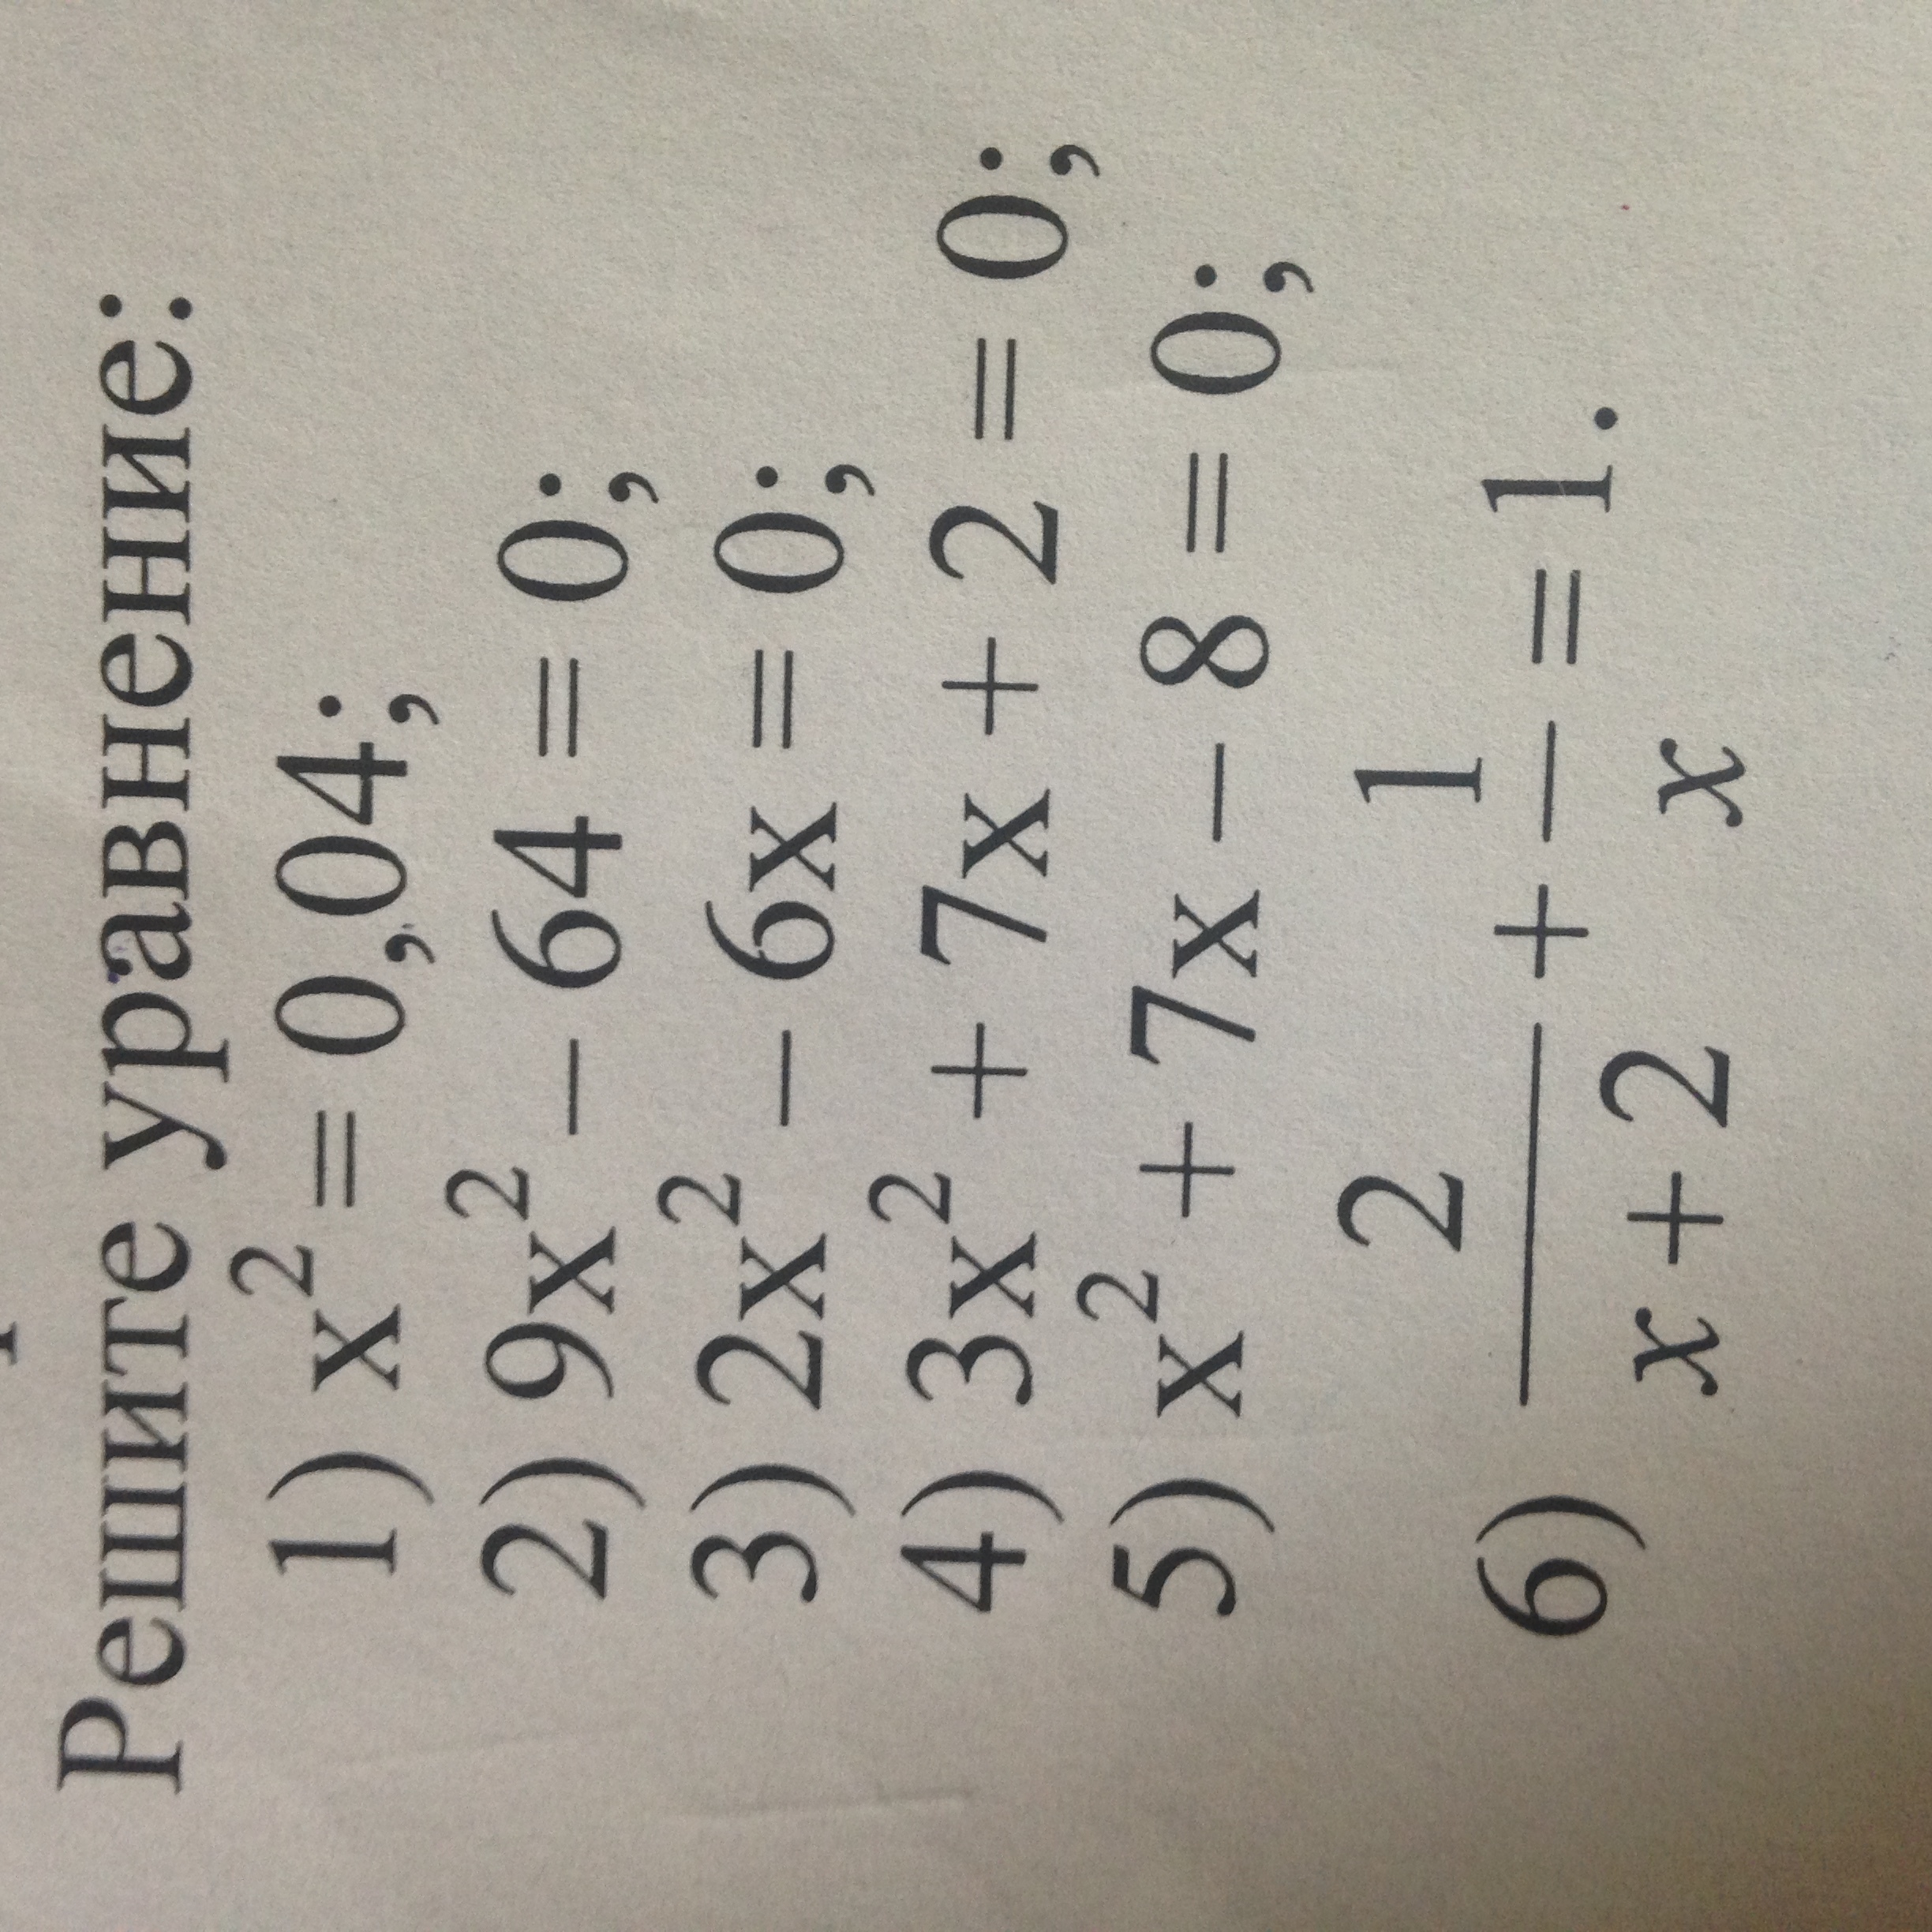 Решите уравнение:
1) x² = 0,04;
2) 9x² – 64 = 0;
3) 2x² – 6x = 0;
4) 3x² + 7x + 2 = 0;
5) x² + 7x – 8 = 0;
6) 2/(x + 2) + 1/x = 1.